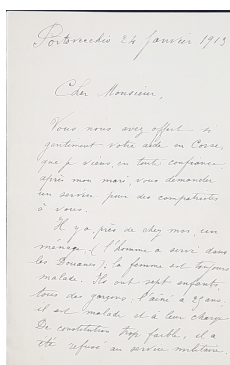 Portovecchio 24 Janvier 1913
Cher Monsieur,
Vous nous avez offert si
gentiment votre aide en Corse,
que je viens, en toute confiance,
après mon mari, vous demander
un service pour des compatriotes
à vous.
Il y a près de chez moi, un
ménage (l'homme a servi dans
les Douanes), la femme est toujours
malade. Ils ont sept enfants,
tous des garçons, l'aîné a 23 ans,
il est malade et à leur charge
De constitution trop faible, il a
été refusé au service militaire.